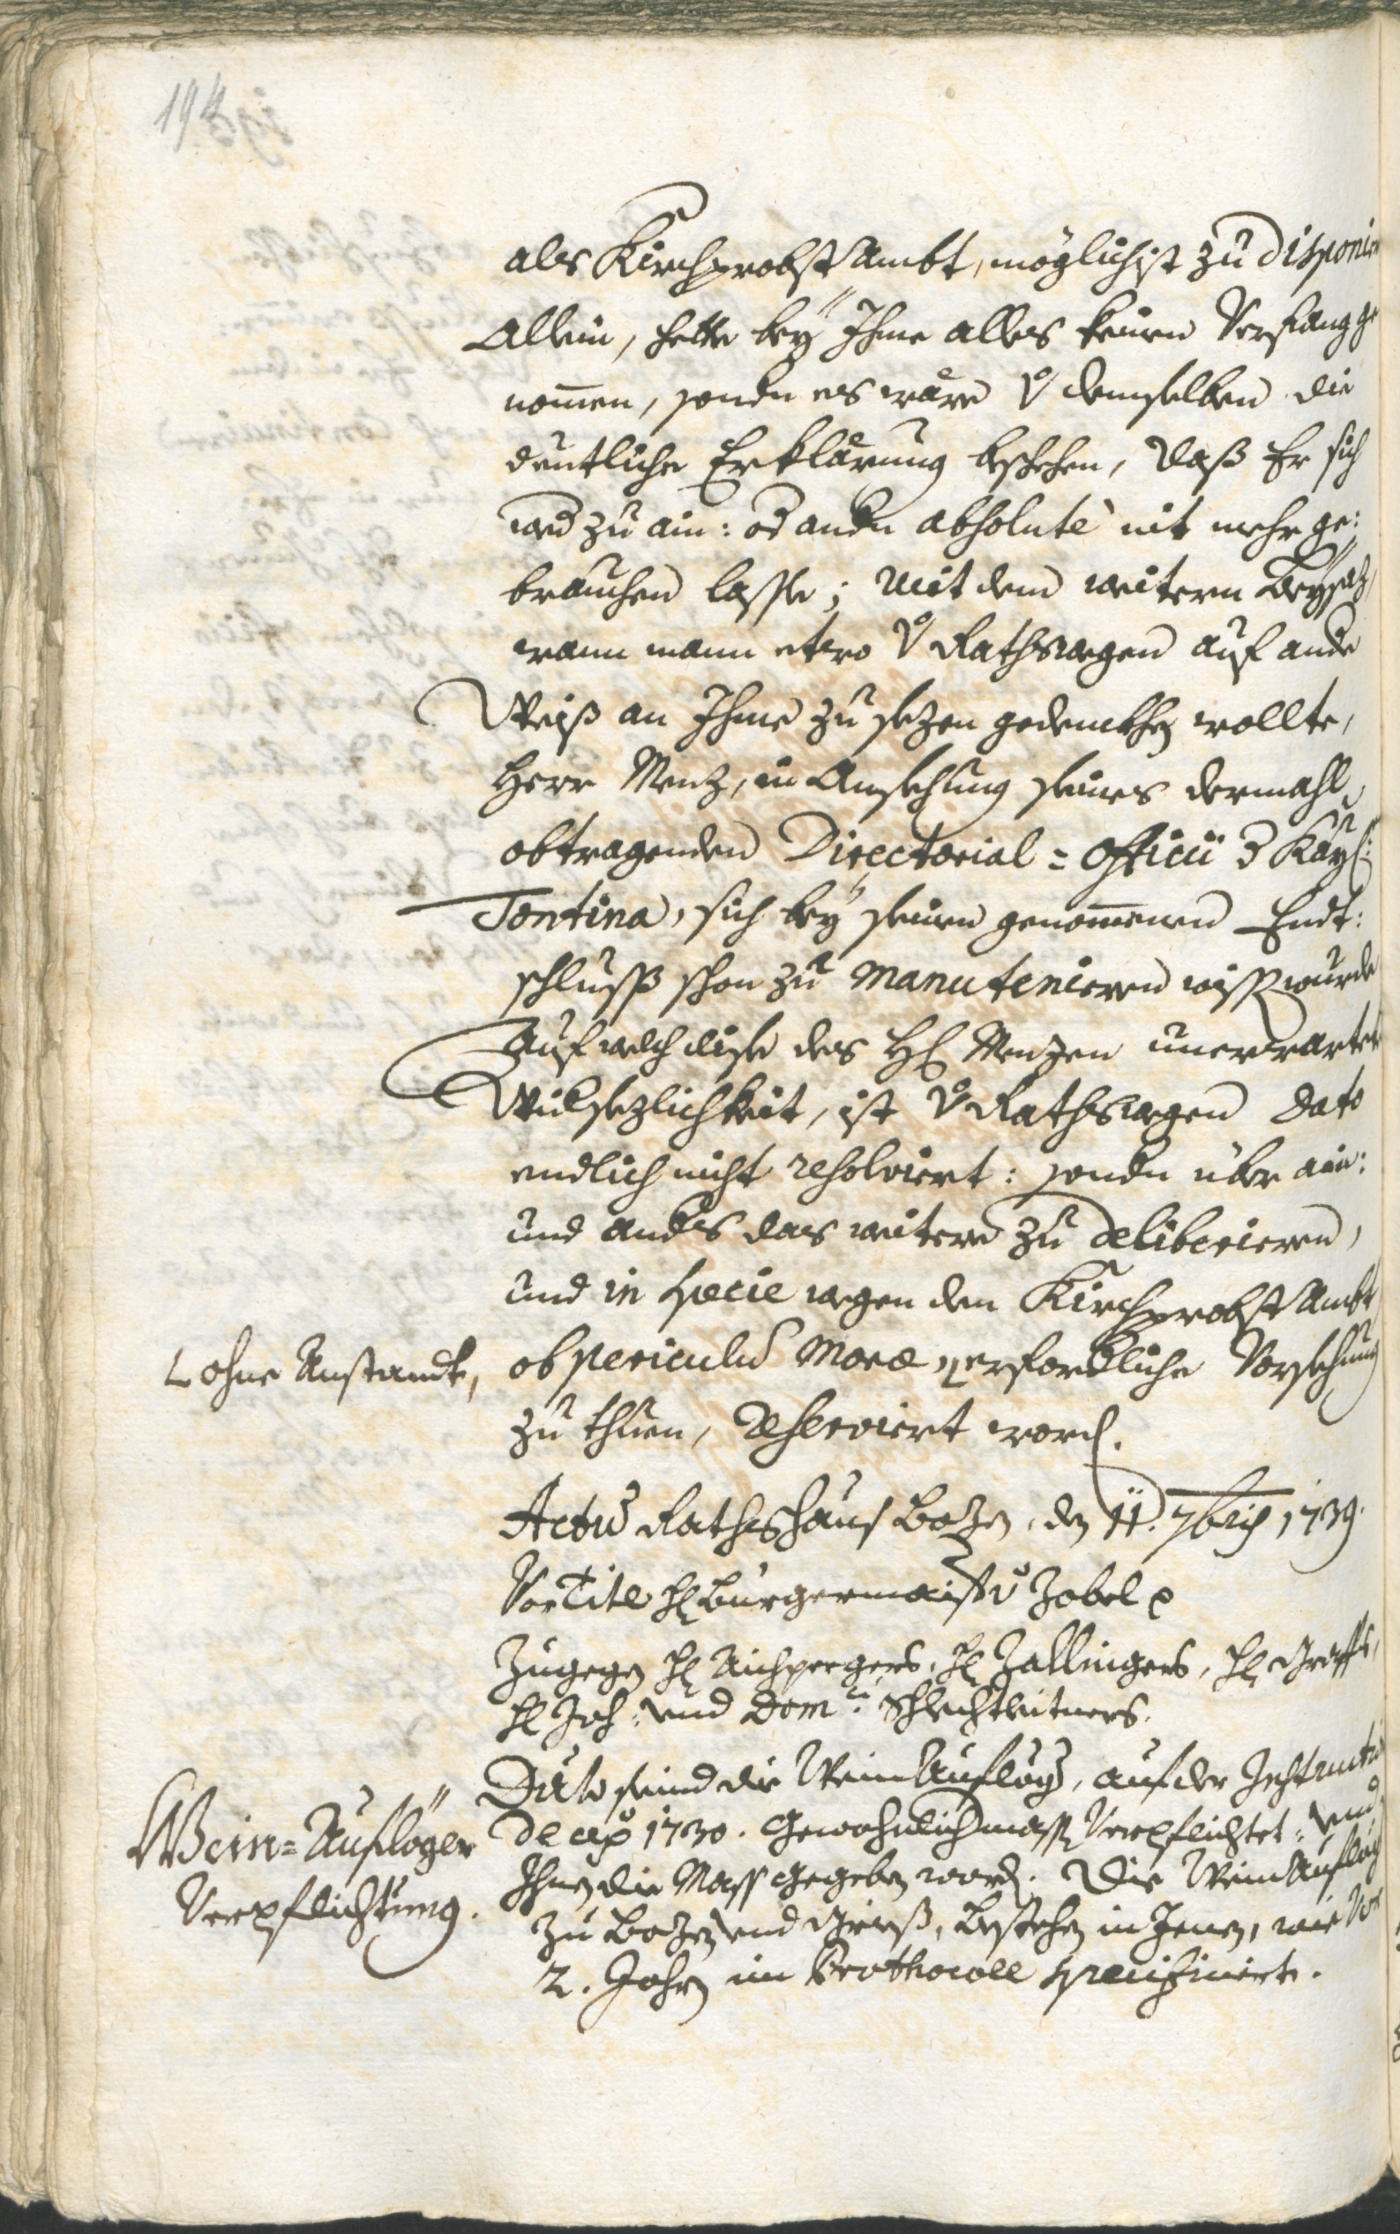 194
als Kirchprobst Ambt, möglichist zu disponie
Allein, hette bey Ihme alles keinen Verfang ge
nommen, sondn es wäre v demselben die
deutliche Erklärung beschehen, daß Er sich
wed zu ain: od andn absolutè nit mehr ge:
brauchen lasse; mit dem weitern Beysaz,
wann mann etwo v Rathswegen auf ande
Weiß an Ihme zu sezen gedenckhen wollte,
Herr Menz, in Ansehung seines dermahl
obtragenden Directorial = Officii d Kayl:
Tontina, sich bey seinen genommenen Endt:
schluss schon zu manutenieren wissen wurde
Auf welch dise des H Menzen unerwartete
Widsezlichkeit, ist v Rathswegen dato
endlich nicht resolviert: sondn über ain:
und anders das weitere zu deliberieren,
und in specie wegen dem Kirchprobst Ambt
ob periculum moræ erforderliche Vorsehung
ohne Anstandt,
zu thuen, reserviert word.
Actum Rathshaus Bozen, den 11. 7bris 1739.
Vor Titl H Burgermaister v Zobel
Zugegen H Aichpergers, H Zallingers, H Graffs,
H Joh: und Dom: Schlechtleitners.
Wein=Aufloger
Verpflichtung.
Dato seind die Wein Aufloger, auf der Instruction
de a° 1730. Gewohnlichmassen Verpflichtet: und
Ihnen die Mass gegeben worden. Die Wein Aufloger
zu Bozen und Grieß, bestehen in Jenen, wie vor
2. Jahren im Prothocoll specificiert.